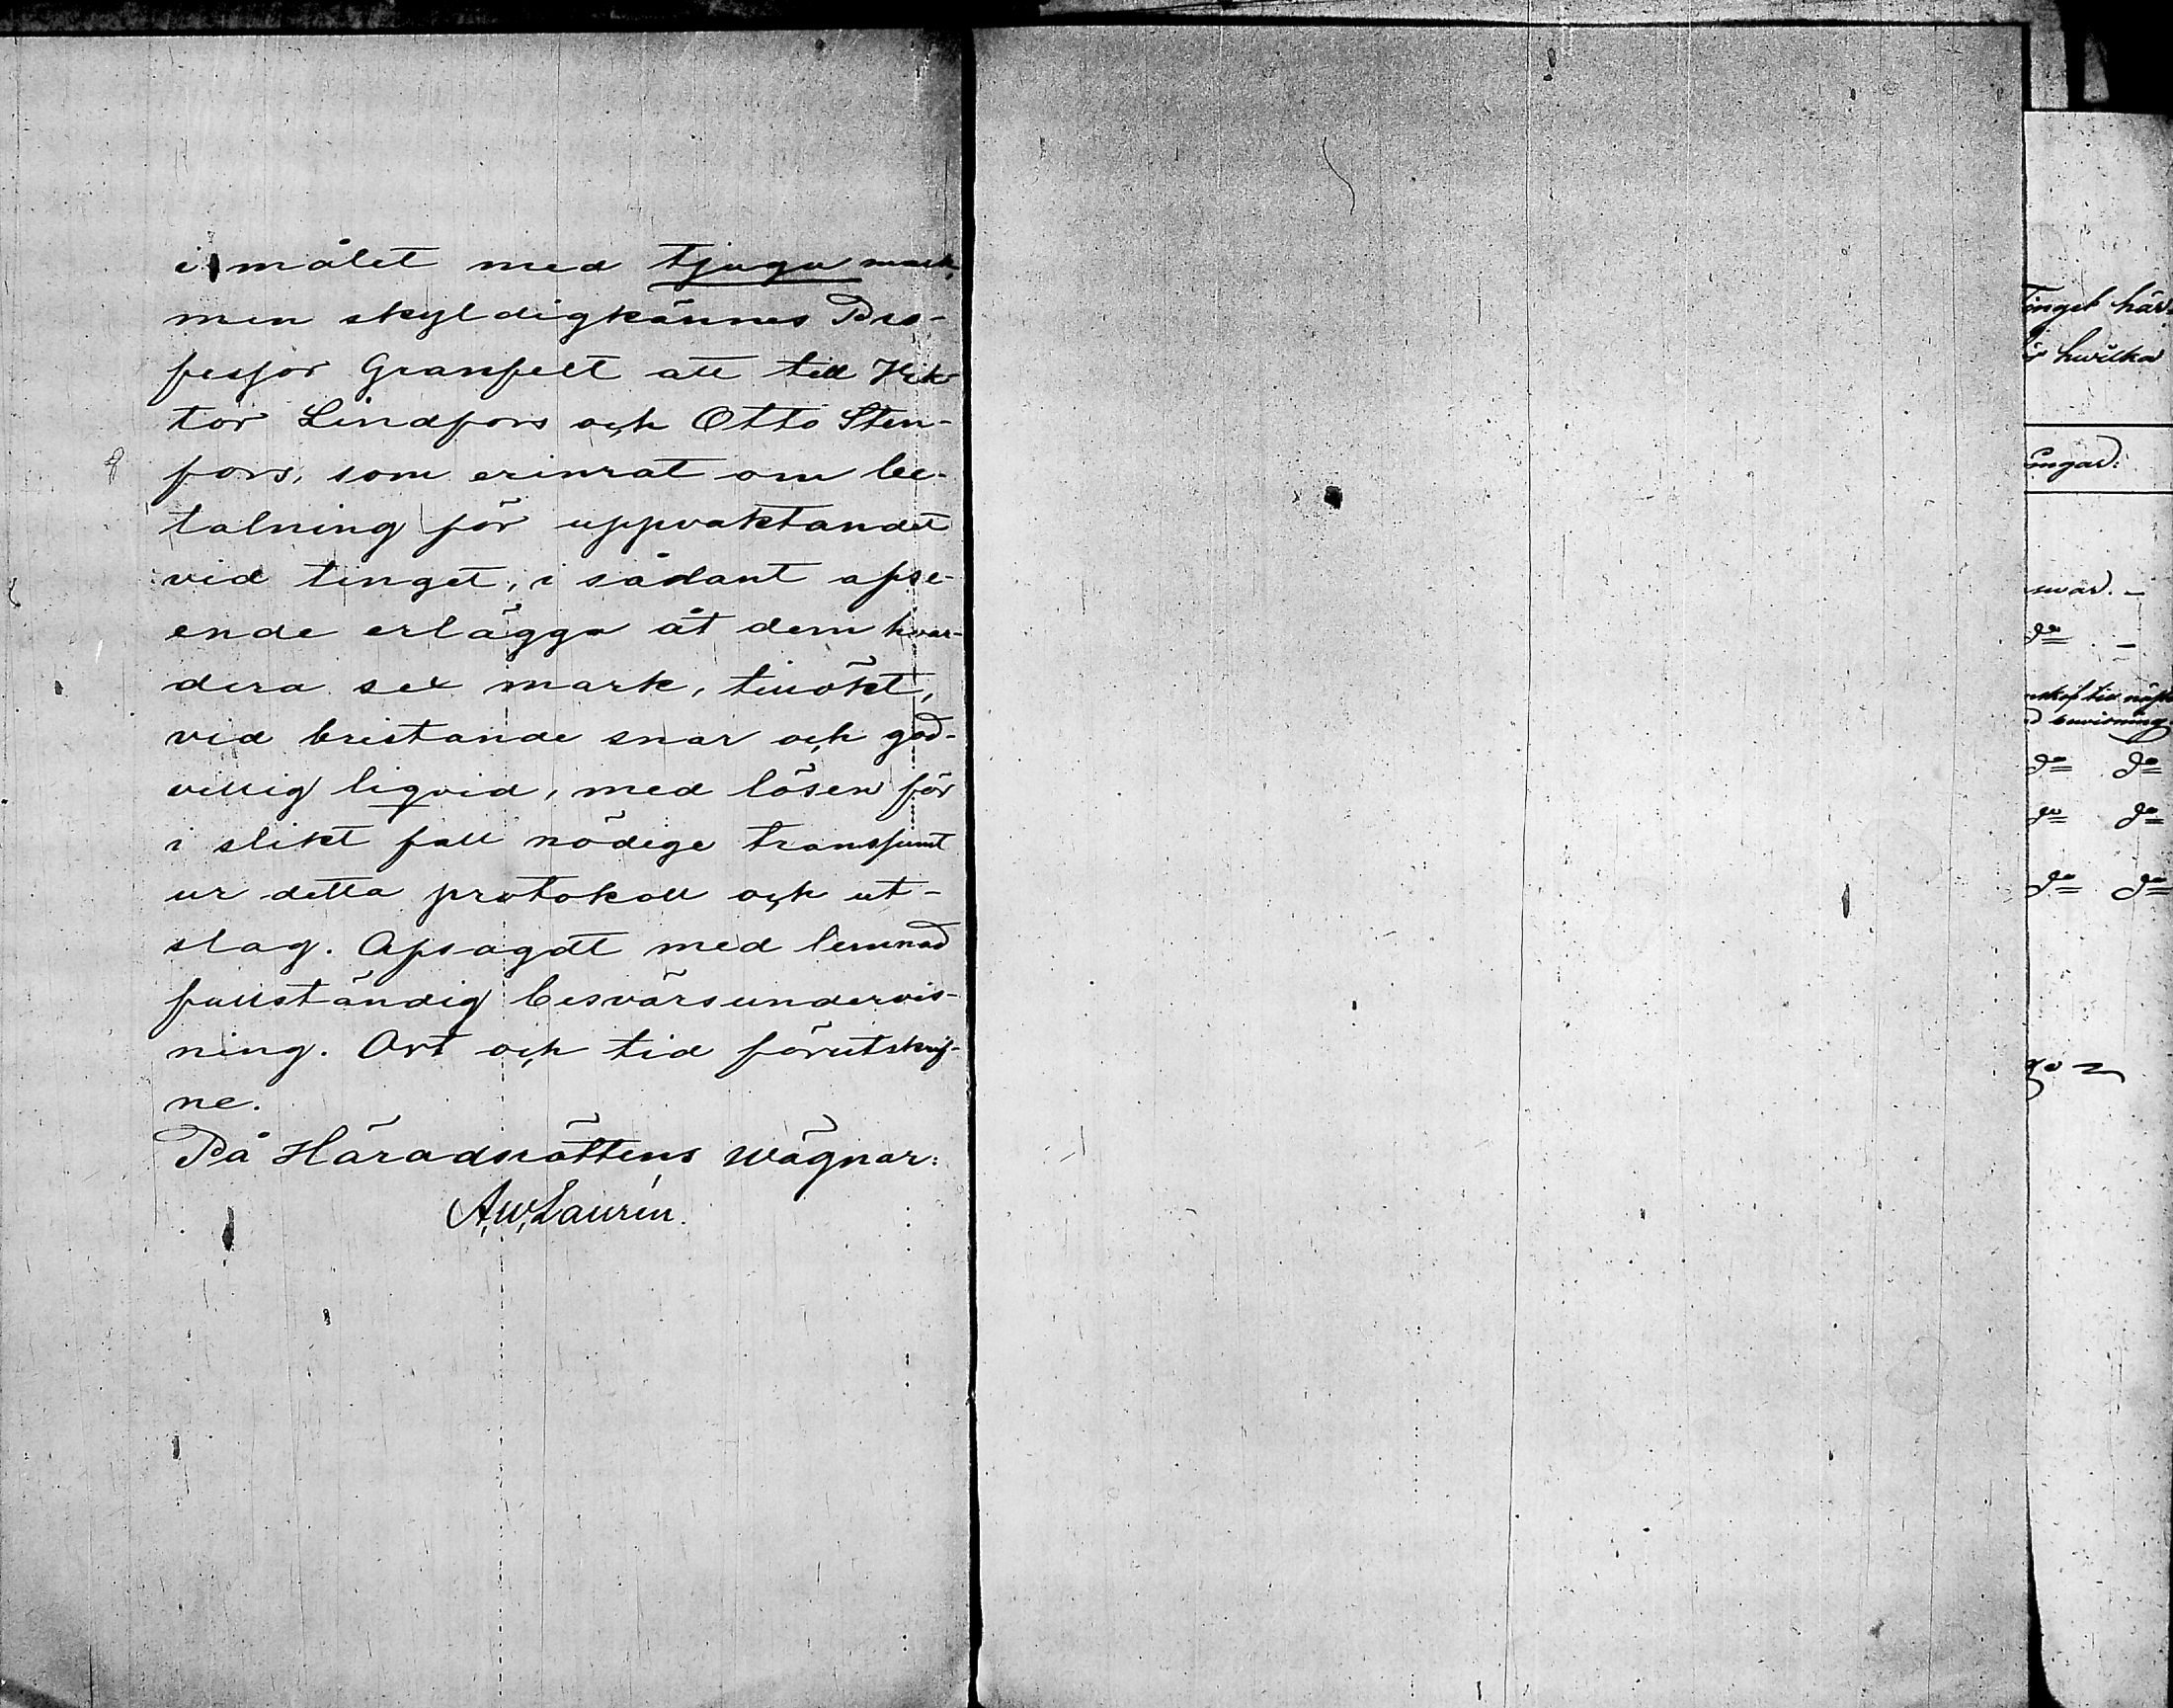 i målet med tjugu mark,
men skyldigkännes Pro-
fessor Granfelt att till Vik-
tor Lindfors och Otto Sten-
fors, som erinrat om be-
talning för uppvaktandet
vid tinget, i sådant afse-
ende erlägga åt dem hvar-
dera sex mark, tillökt,
vid bristande snar och god-
villig liqvid, med lösen för
i slikt fall nödige transsumt
ur detta protokoll och ut-
slag. Afsagdt med lemnad
fullständig besvärsundervis-
ning. Ort och tid förutskrif-
ne.
På Häradsrättens wägnar:
A.W. Laurén.
Tinget här-
hwilka
ingar:
swar. -
do -
do do
do do
do do